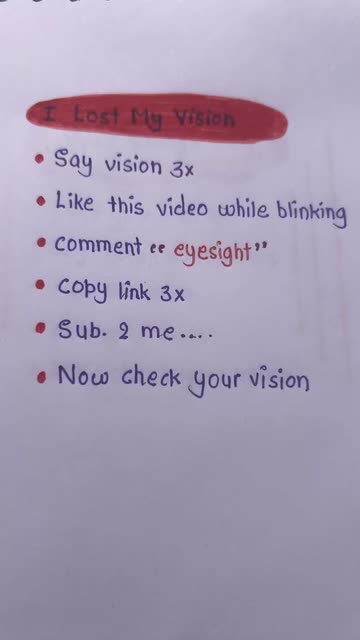 I Lost My Vision
• Say vision 3x
• Like this video while blinking
• comment “eyesight”
• copy link 3x
• Sub. 2 me....
• Now check your vision